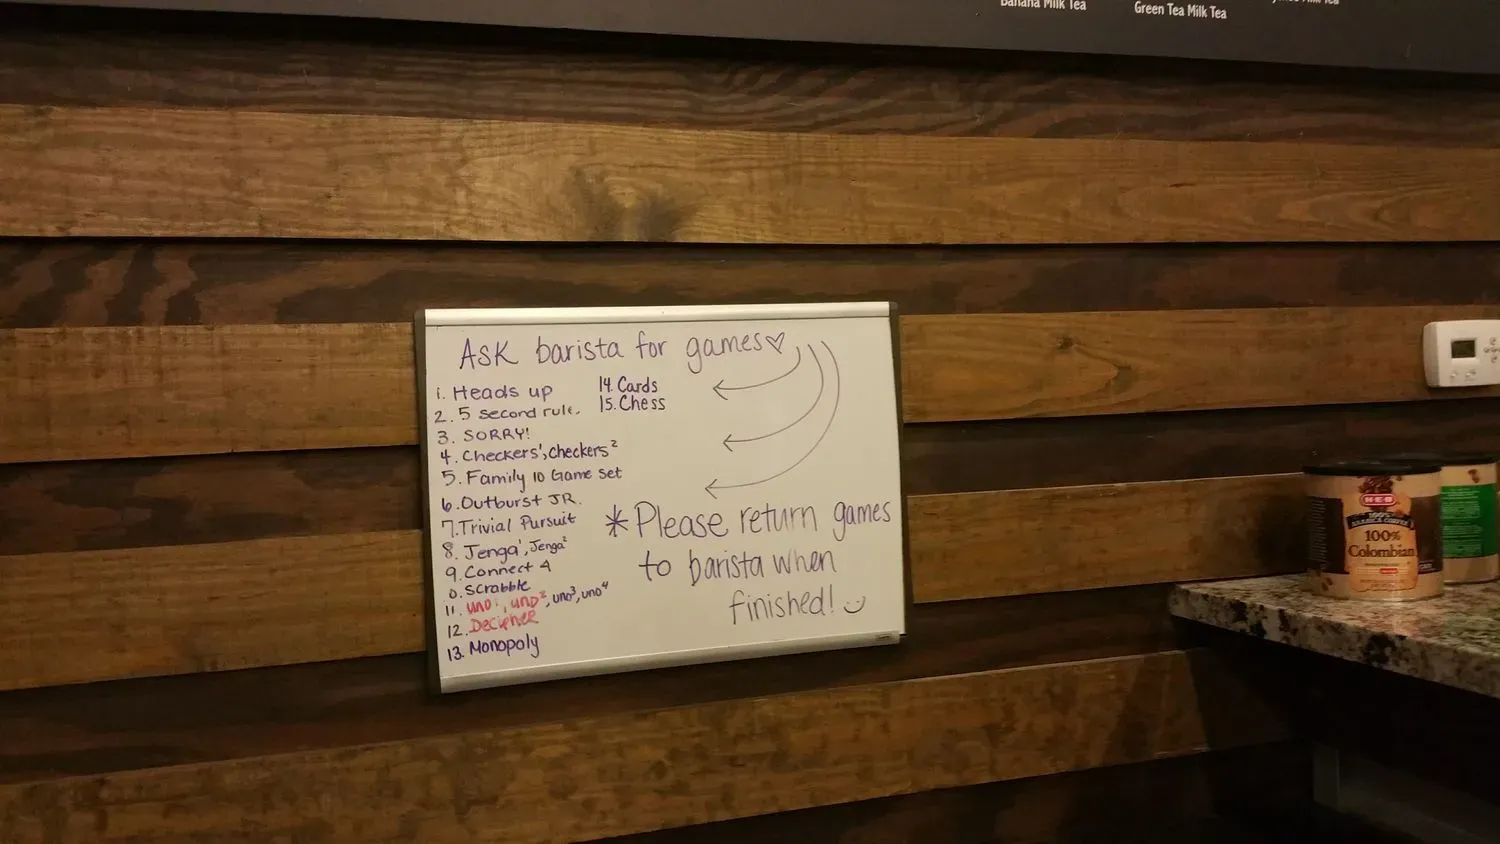 Banana Milk Tea
Green Tea Milk Tea
Milk Tea
ASK barista for games♡
1. Heads up
2. 5 second rule.
3. SORRY!
4. Checkers¹, Checkers²
5. Family 10 Game Set
6. Outburst JR.
7. Trivial Pursuit
8. Jenga¹, Jenga²
9. Connect 4
0. Scrabble
11. uno¹, uno², uno³, uno⁴
12. Decipher
13. Monopoly
14. Cards
15. Chess
*Please return games
to barista when
finished!
H-E-B
100%
ARABICA COFFEE
100%
Colombian